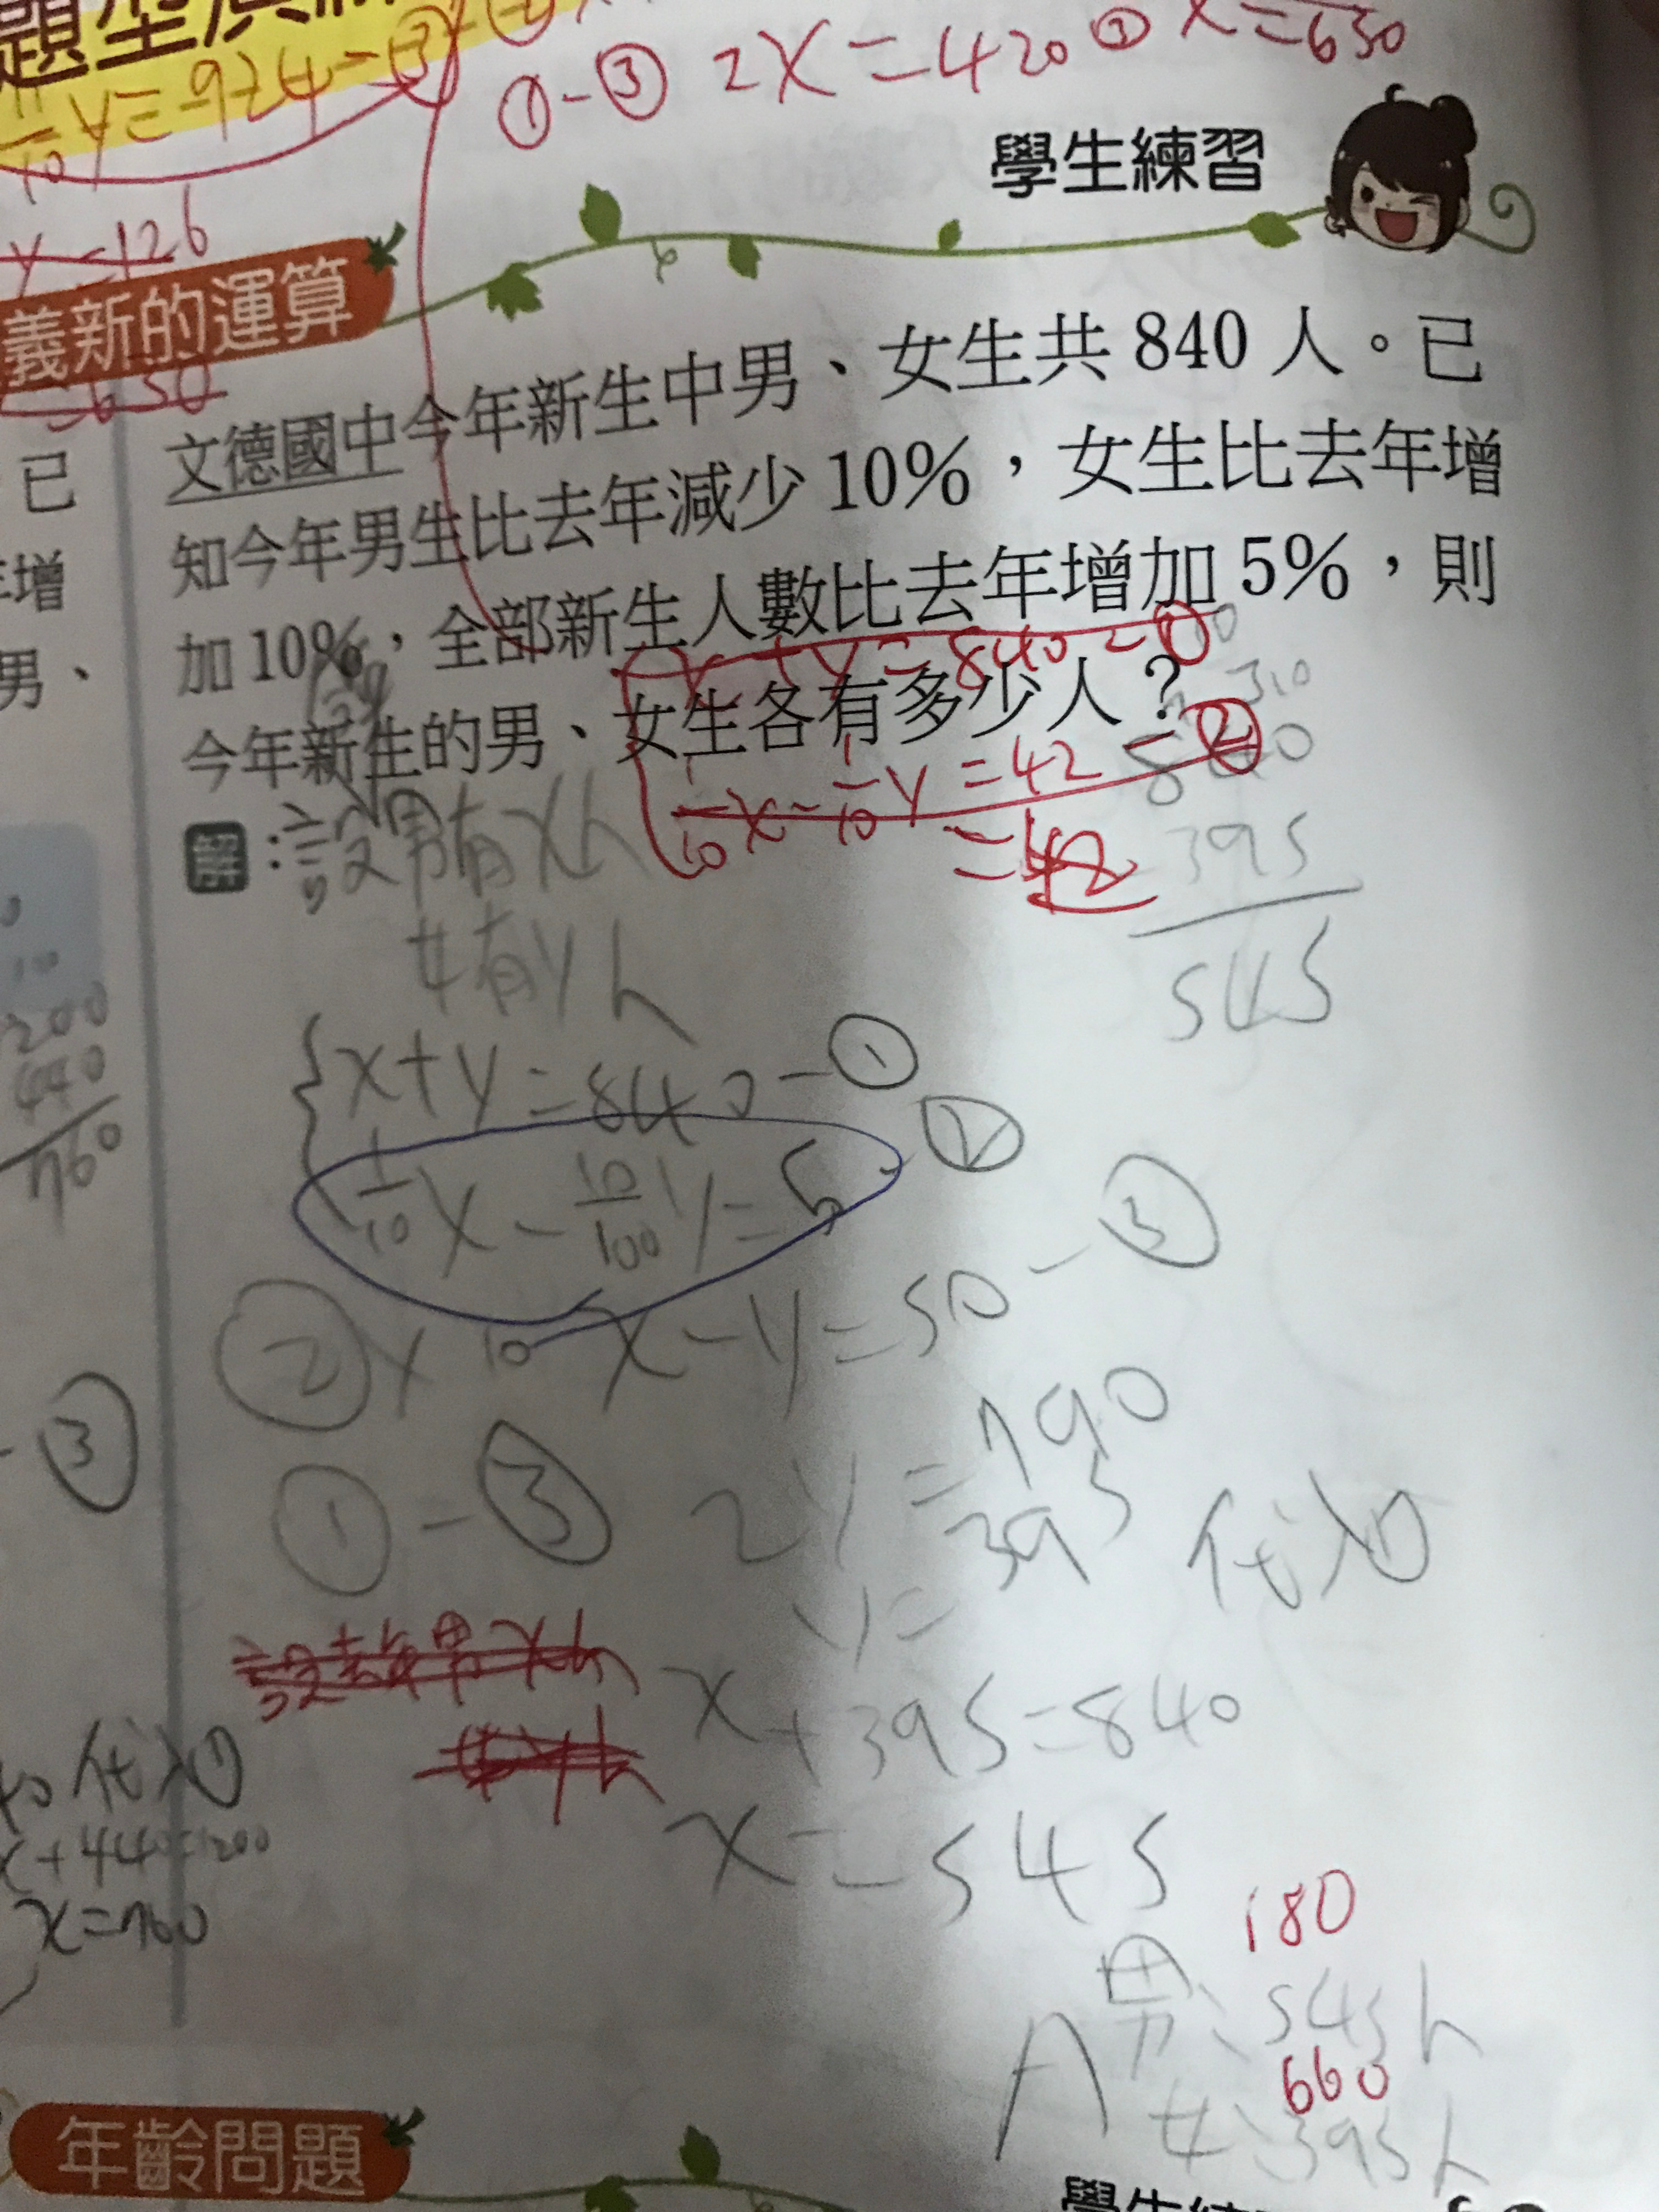 ①-③ 2X=420 ② X=630
y=-924-③
y=126
學生練習
義新的運算
文德國中今年新生中男、女生共 840 人。已
知今年男生比去年減少 10%,女生比去年增
加 10%,全部新生人數比去年增加 5%,則
今年新生的男、女生各有多少人?
x+y=840-①
1/10x-1/10y=42-②
=42
840
395
545
解:設男有X人
女有y人
x+y=840-①
1/10x-10/100y=5 ②
②x10 x-y=50-③
①-③ 2y=790
y=395 代入①
設去年男x人
x+395=840
x=545
180
A 男:545人
660
女:395人
已
增
男、
200
440
760
③
代入①
x+44 200
x=760
年齡問題